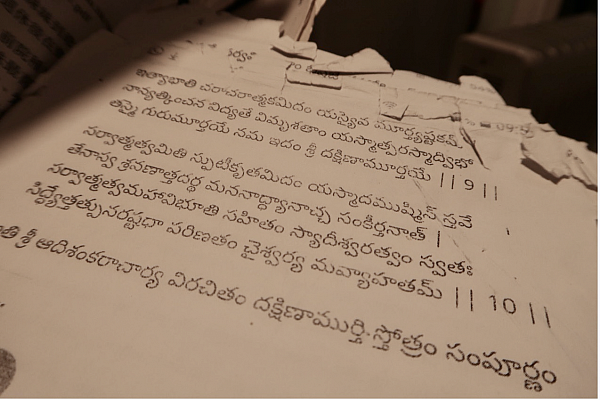 ఇత్యాభాతి చరాచరాత్మకమిదం యస్యైవ మూర్త్యష్టకమ్
నాన్యత్కించన విద్యతే విమృశతాం యస్మాత్పరస్మాద్విభో
తస్మై గురుమూర్తయే నమ ఇదం శ్రీ దక్షిణామూర్తయే || 9 ||
సర్వాత్మత్వమితి స్ఫుటీకృతమిదం యస్మాదముష్మిన్ స్తవే
తేనాస్వ శ్రవణాత్తదర్థ మననాద్ధ్యానాచ్చ సంకీర్తనాత్ |
సర్వాత్మత్వమహావిభూతి సహితం స్యాదీశ్వరత్వం స్వతః
సిద్ధ్యేత్తత్పునరష్టధా పరిణతం చైశ్వర్య మవ్యాహతమ్ || 10 ||
తి శ్రీ ఆదిశంకరాచార్య విరచితం దక్షిణాముర్తి స్తోత్రం సంపూర్ణం